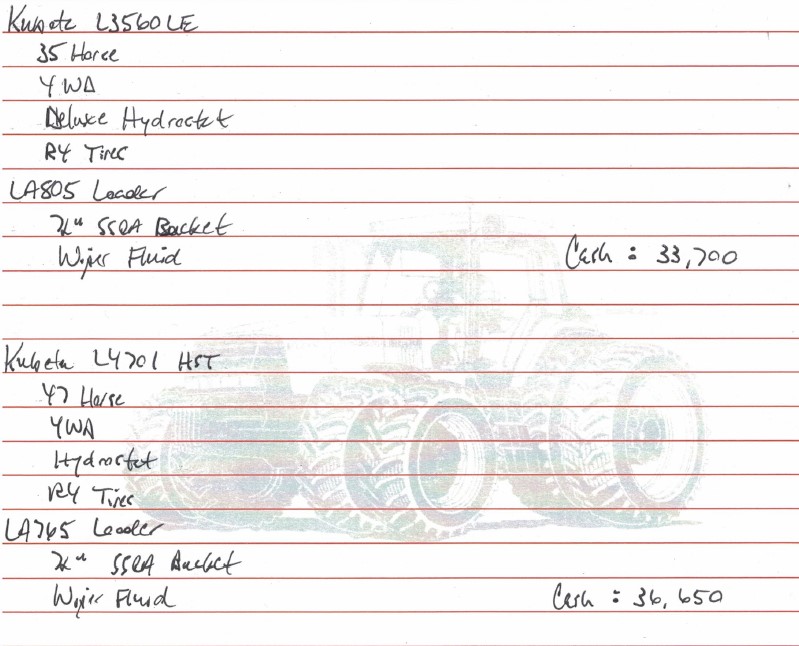 Kubota L3560LE
35 Horse
4WD
Deluxe Hydrostat
R4 Tires
LA805 Loader
72" SSQA Bucket
Wiper Fluid
Cash : 33,700
Kubota L4701 HST
47 Horse
4WD
Hydrostat
R4 Tires
LA765 Loader
72" SSQA Bucket
Wiper Fluid
Cash : 36,650